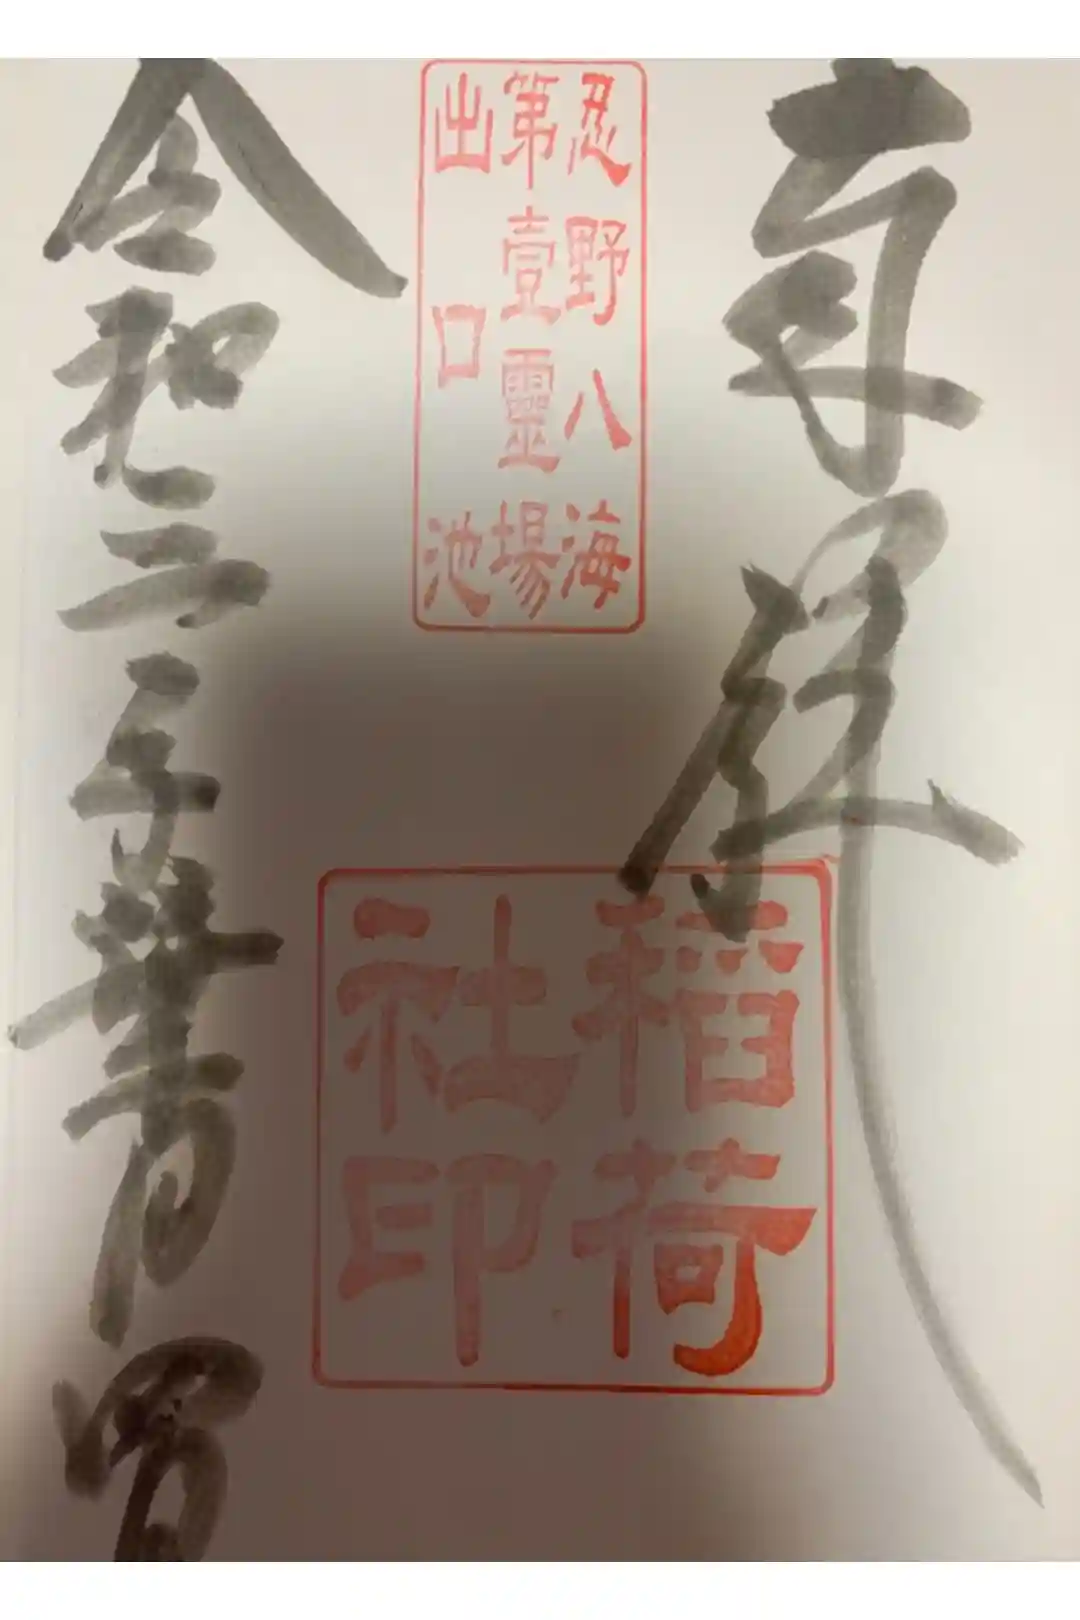 奉拝
忍野八海
第壹靈場
出口池
稲荷
社印
令和二年